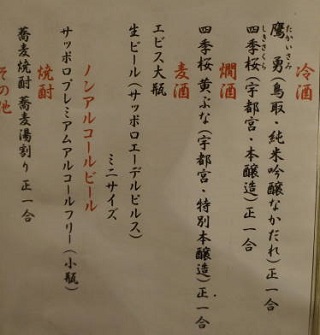 冷酒
たかいさみ
鷹勇(鳥取・純米吟醸なかだれ)正一合
しきざくら
四季桜(宇都宮・本醸造)正一合
燗酒
四季桜 黄ぶな(宇都宮・特別本醸造)正一合
麦酒
ヱビス大瓶
生ビール(サッポロエーデルピルス)
ミニサイズ
ノンアルコールビール
サッポロプレミアムアルコールフリー(小瓶)
焼酎
蕎麦焼酎 蕎麦湯割り 正一合
その他